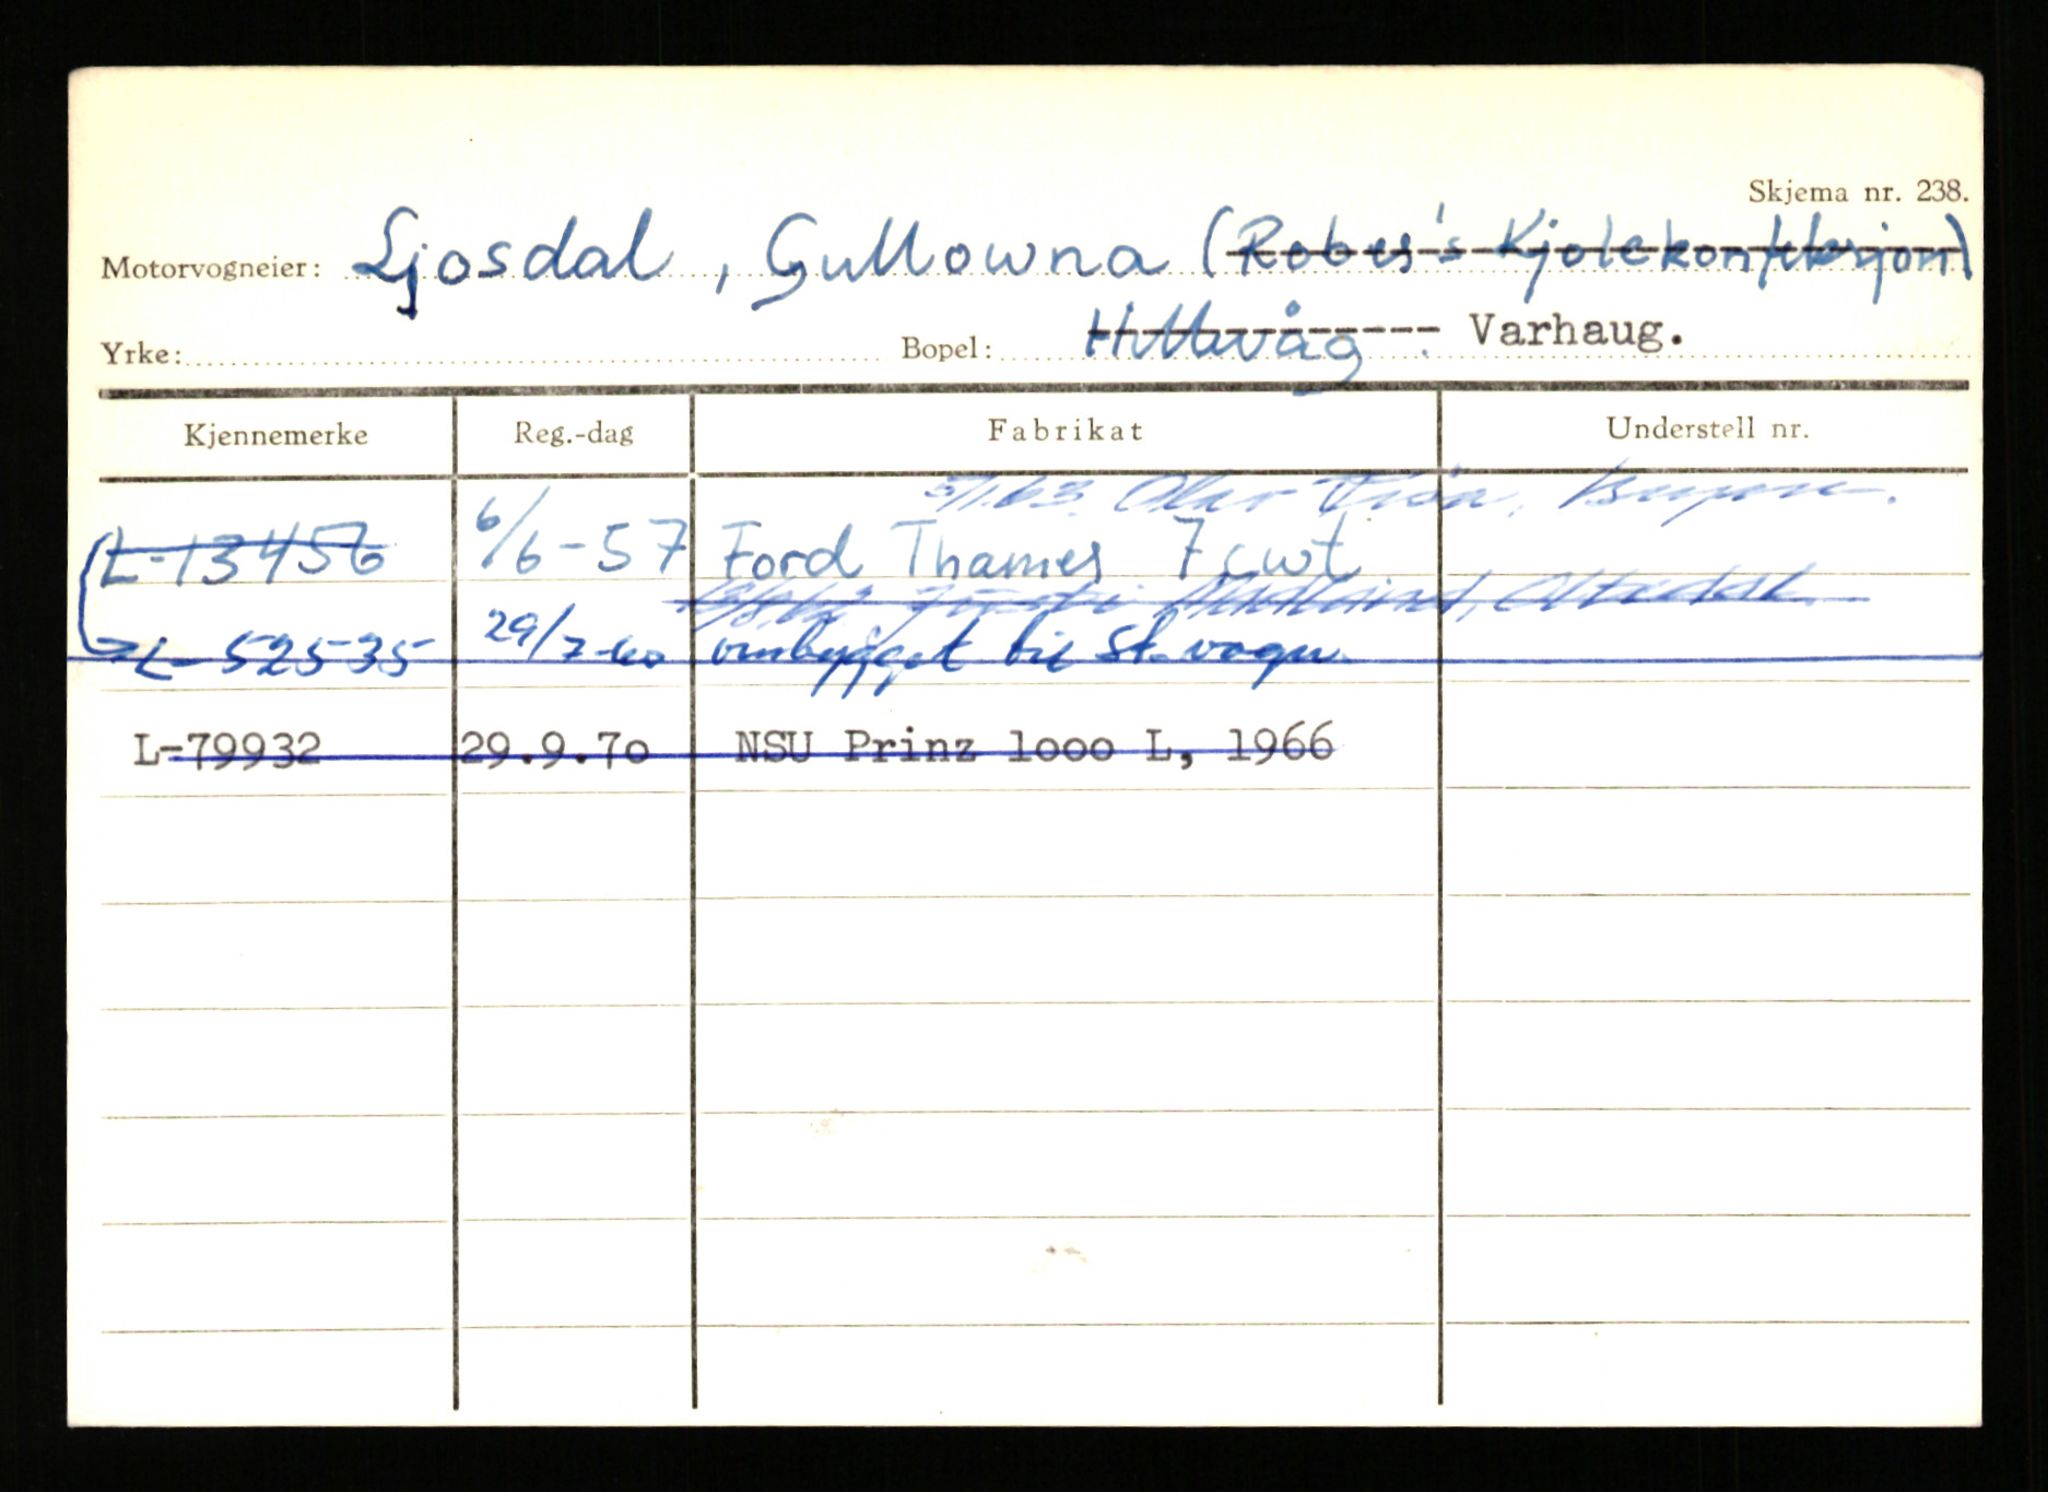 Skjema nr. 238.
Motorvogneier: Ljosdal, Gullowna (Robes's Kjolekonfeksjon)
Yrke: Bopel: Hillevåg Varhaug.
Kjennemerke Reg.-dag Fabrikat Understell nr.
L-13456 6/6-57 Ford Thames 7 cwt
L-52535 29/7-60 ombygget til st.vogn.
L-79932 29.9.7o NSU Prinz 1ooo L, 1966